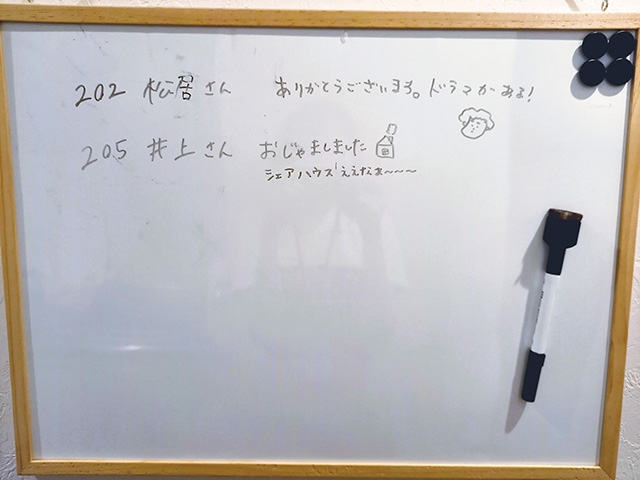 202 松居さん ありがとうございます。ドラマがある!
205 井上さん おじゃましました
シェアハウスええなぁ〜〜〜